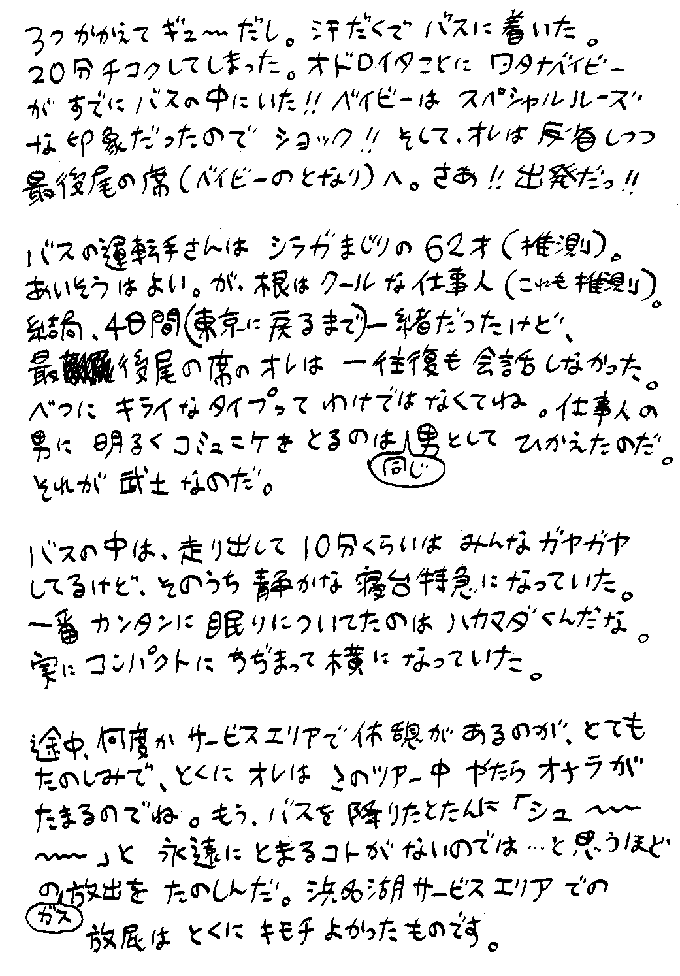 3つかかえてギュ〜だし。汗だくでバスに着いた。
20分チコクしてしまった。オドロイタことにワタナベイビー
がすでにバスの中にいた!!ベイビーはスペシャルルーズ
な印象だったのでショック!!そして、オレは反省しつつ
最後尾の席(ベイビーのとなり)へ。さあ!!出発だっ!!
バスの運転手さんはシラガまじりの62才(推測)。
あいそうはよい。が、根はクールな仕事人(これも推測)。
結局、4日間(東京に戻るまで)一緒だったけど、
最後尾の席のオレは一往復も会話しなかった。
べつにキライなタイプってわけではなくてね。仕事人の
男に明るくコミュニケをとるのは同じ男としてひかえたのだ。
それが武士なのだ。
バスの中は、走り出して10分くらいはみんなガヤガヤ
してるけど、そのうち静かな寝台特急になっていた。
一番カンタンに眠りについてたのはハカマダくんだな。
実にコンパクトにちぢまって横になっていた。
途中、何度かサービスエリアで休憩があるのが、とても
たのしみで、とくにオレはこのツアー中やたらオナラが
たまるのでね。もう、バスを降りたとたんに「シュ〜〜
〜〜」と永遠にとまるコトがないのでは…と思うほど
のガス放出をたのしんだ。浜名湖サービスエリアでの
放屁はとくにキモチよかったものです。